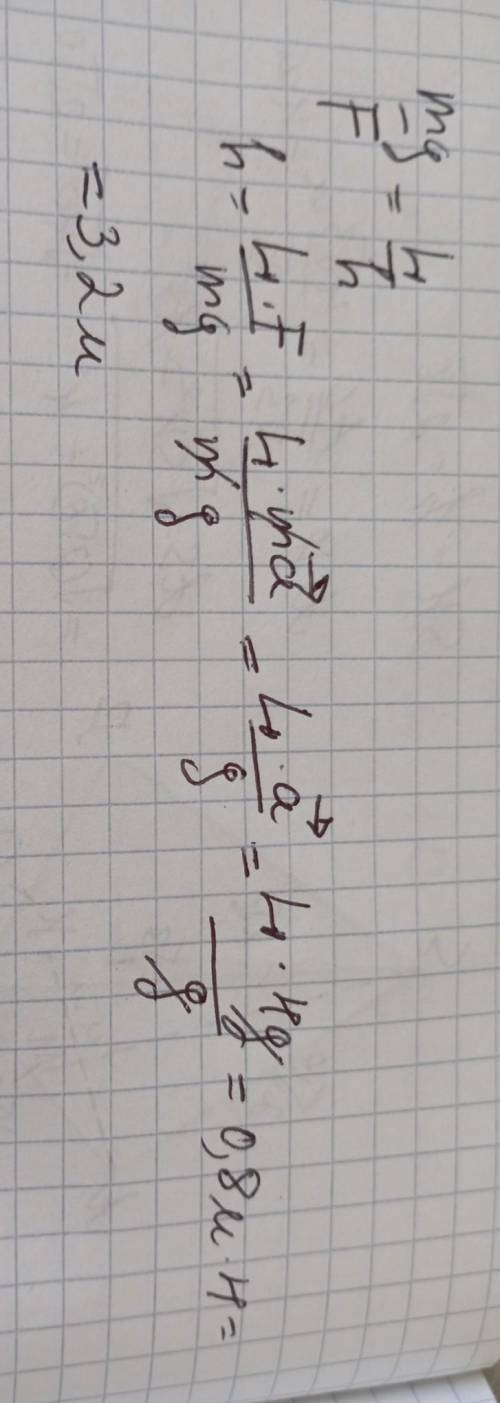 mg/F = L/h
h = L·F/mg = L·ma⃗/mg = L·a⃗/g = L·4g/g = 0,8м·4 =
= 3,2м